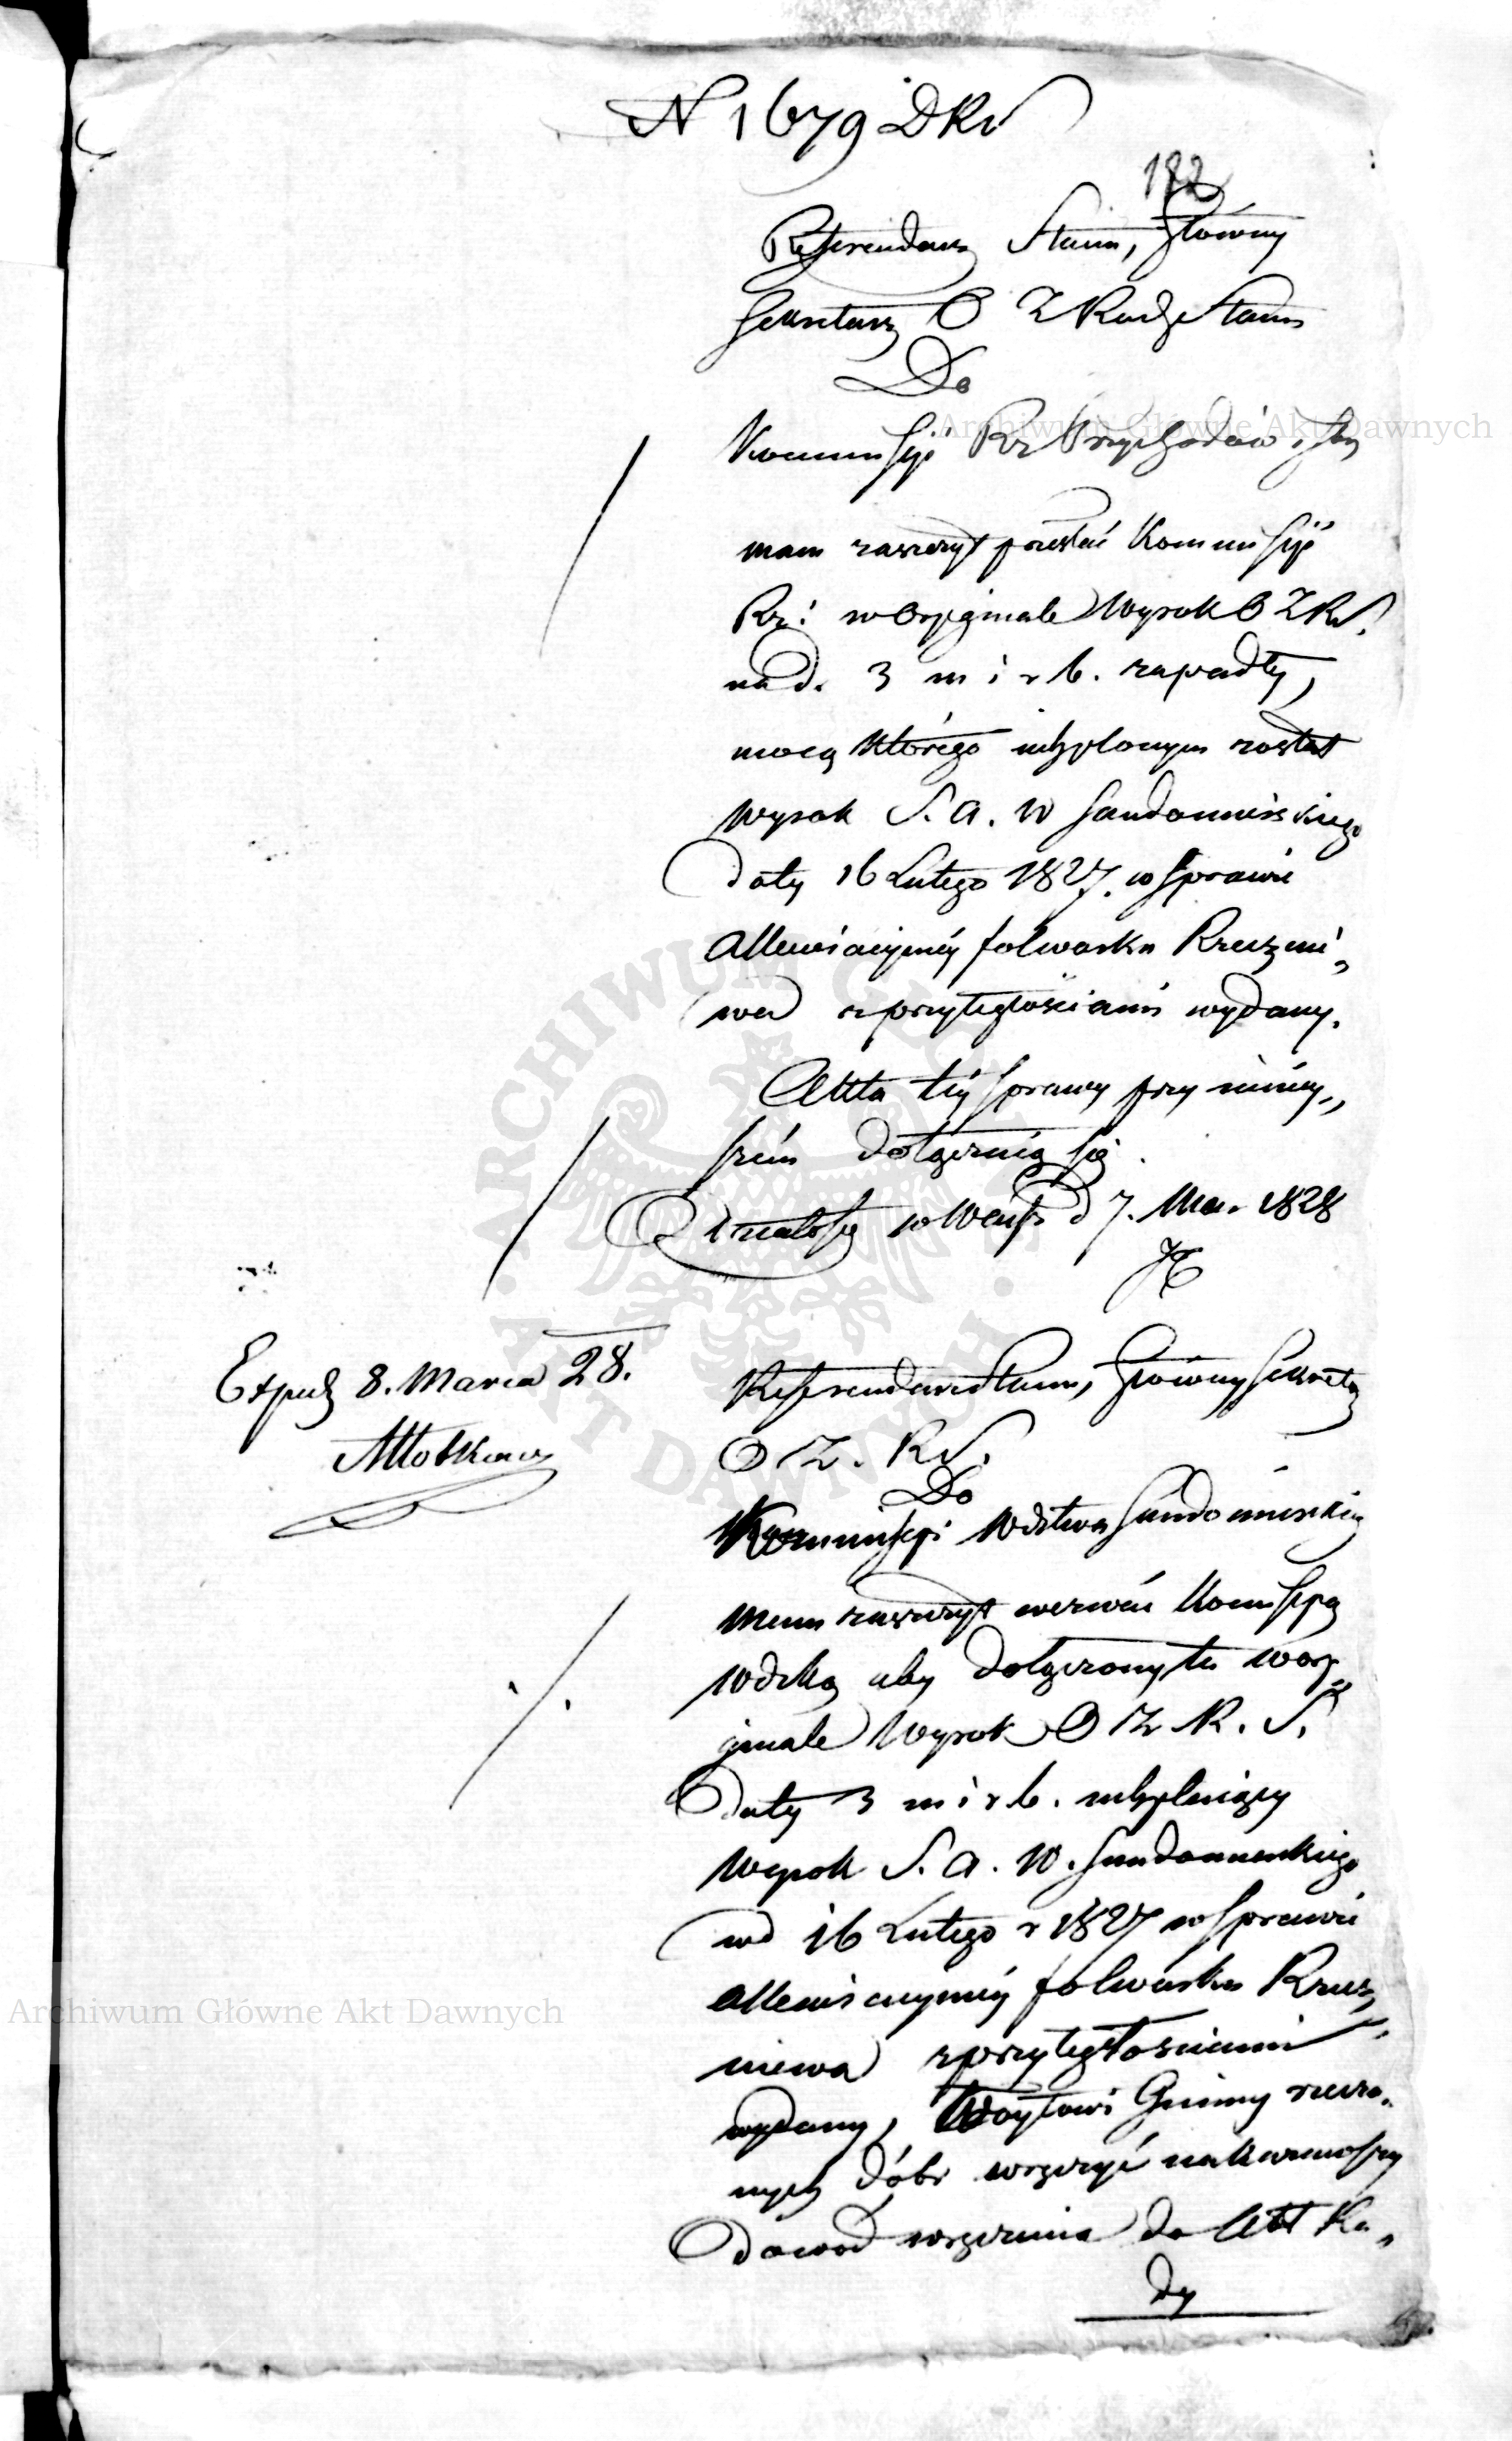 N 1679 DRS
182
Referendarz Stanu, Główny
Sekretarz O Z Rady Stanu
Do
Kommissyi Rz Przychodów i Sk
mam zaszczyt przesłać Kommissyi
Rz: w Oryginale Wyrok O Z RS.
na d. 3 m i r b. zapadły,
mocą którego uchylonym został
Wyrok S. A. W Sandomirskiego
daty 16 Lutego 1827. w sprawie
Allewiacyjnéy folwarku Rzeczni„
wa z przyległościami wydany.
Akta téy sprawy przy niniey„
szém dołączaią się.
Działo się w Warsz d 7. Mar 1828
Exped 8. Marca 28.
Referendarz Stanu, Główny Sekretarz
O Z. R S.
Do
Kommissyi Wdztwa Sandomirskie
mam zaszczyt wezwać Komissyą
Wdzką aby dołączony tu w ory„
ginale Wyrok O Z R. S.
daty 3 m i r b. uchylaiący
Wyrok S. A. W. Sandomirskiego
z d 16 Lutego r 1827 w sprawie
Allewiacyjnéy folwarku Rzecz„
niewa z przyległościami
wydany, Woytowi Gminy rzeczo„
nych dóbr wręczyć nakazawszy
dowód wręczenia do Akt Ra„
dy
Archiwum Główne Akt Dawnych
Archiwum Główne Akt Dawnych